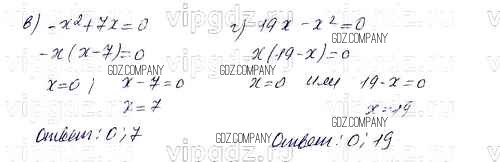 в) -x²+7x=0
-x(x-7)=0
x=0; x-7=0
x=7
Ответ: 0; 7
г) -19x-x²=0
x(19-x)=0
x=0 или 19-x=0
x=-19
Ответ: 0; 19
GDZ.COMPANY
GDZ.COMPANY
GDZ.COMPANY
GDZ.COMPANY
GDZ.COMPANY
GDZ.COMPANY
vipgdz.com
vipgdz.com